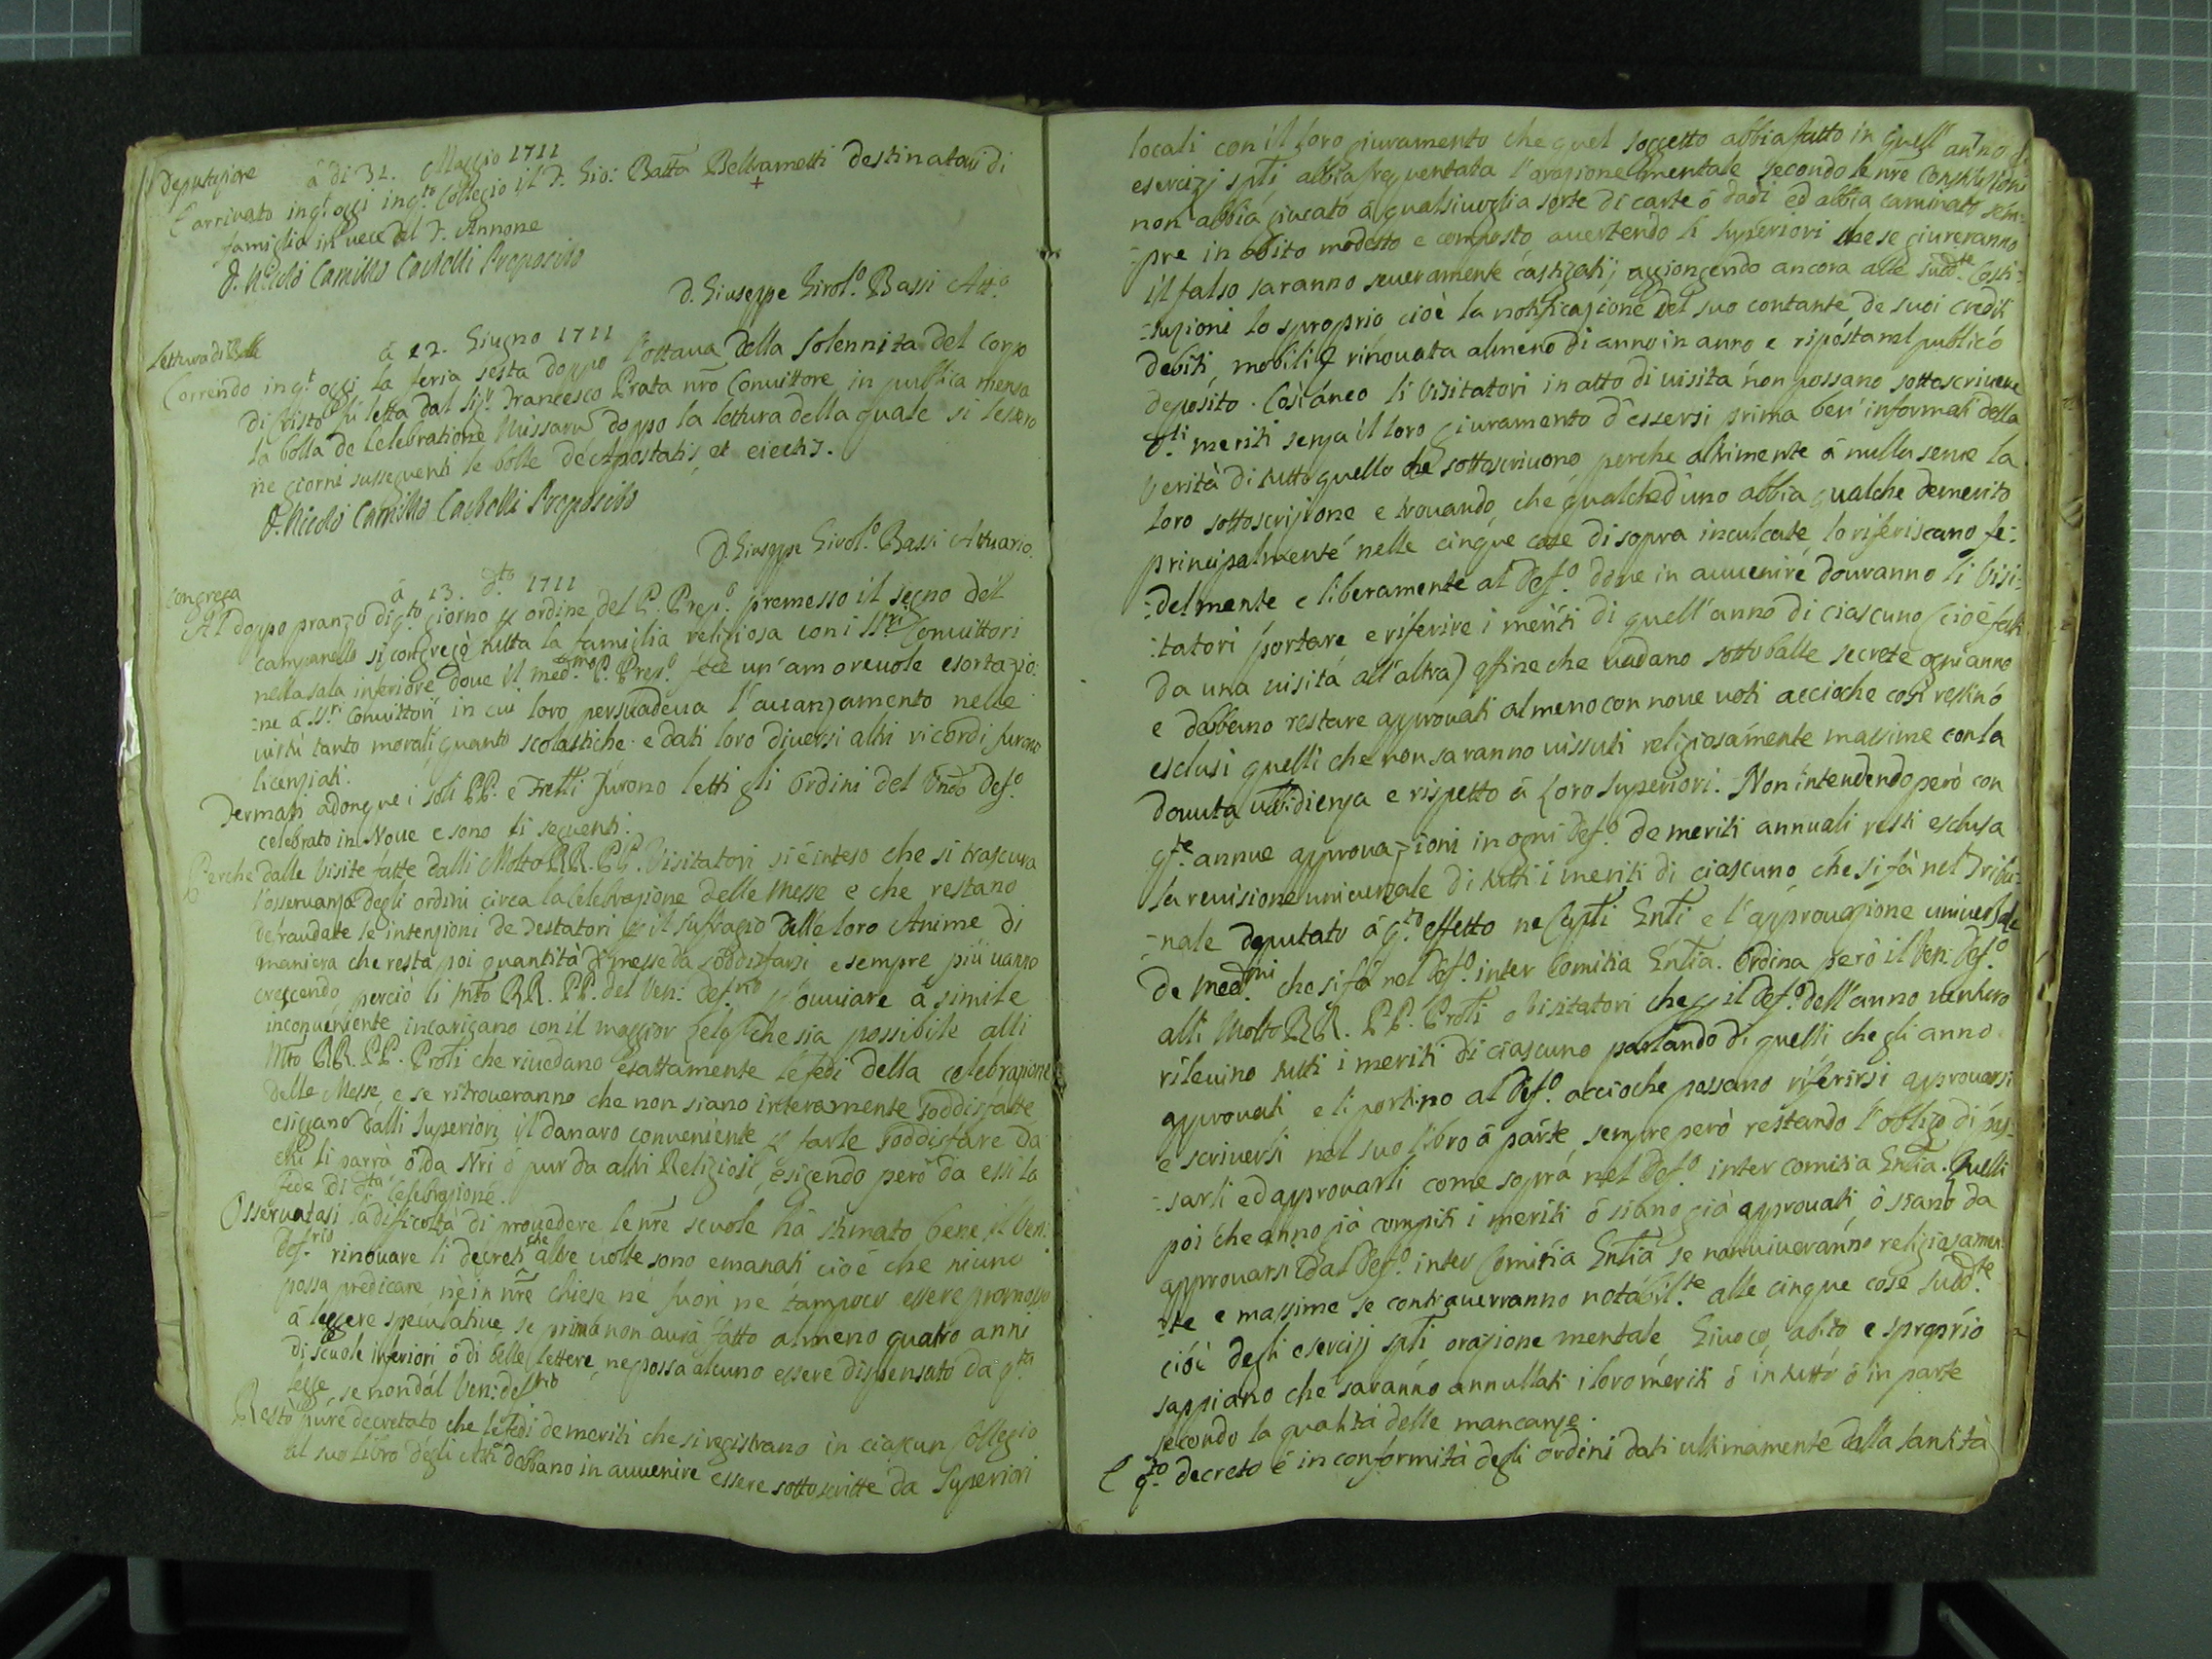 Deputazione
à di 31. Maggio 1711
È arrivato in q.t oggi in q.to Collegio il F. Gio: Batta Beltrametti destinatovi di
famiglia in vece del F. Annone
D. Nicolò Camillo Castelli Proposito
D. Giuseppe Girol.o Bassi Att.o
Lettura di Bolle
à 12. Giugno 1711
Correndo in q.t oggi la feria sesta doppo l'ottava della solennita del Corpo
di Cristo fu letta dal Sig.r Francesco Prata nro Convittore in publica mensa
la bolla de Celebratione Missarũ doppo la lettura della quale si lessero
ne giorni susseguenti le bolle de Apostatis, et eiectis.
D. Nicolò Camillo Castelli Proposito
D. Giuseppe Girol.o Bassi Attuario.
Congrega
à 13. d.to 1711
Al doppo pranzo di q.to giorno p ordine del P. Prep.o premesso il segno del
campanello si congregò tutta la famiglia religiosa con i SS.ri Convittori
nella sala inferiore dove il med.mo P. Prep.o fece un'amorevole esortazio:
:ne à SS.ri Convittori in cui loro persuadeva l'avanzamento nelle
virtù tanto morali quanto scolastiche e dati loro diversi altri ricordi furono
licenziati.
Fermati adonque i soli PP. e Fratti furono letti gli Ordini del Vndo Def.o
celebrato in Nove e sono li seguenti.
Perche dalle Visite fatte dalli Molto RR. PP. Visitatori si è inteso che si trascura
l'osservanza degli ordini circa la Celebrazione delle Messe e che restano
defraudate le intenzioni de Testatori p il suffragio delle loro Anime di
maniera che resta poi quantità di messe da soddisfarsi e sempre più vanno
crescendo perciò li Mto RR. PP. del Ven: Def.rio p ovviare à simile
inconveniente incaricano con il maggior zelo che sia possibile alli
Mto RR. PP. Proti che rivedano esattamente le fedi della celebrazione
delle Messe, e se ritroveranno che non siano interamente soddisfatte
esigano dalli Superiori il danaro conveniente p farle soddisfare da
chi li parrà ò da Nri ò pur da altri Religiosi, esigendo però da essi la
fede di d.ta Celebrazione.
Osservatasi la difficoltà di provedere le nre scuole hà stimato bene il Ven:
Def.rio rinovare li decreti che altre volte sono emanati cioè che niuno
possa predicare nè in nre chiese nè fuori nè tampoco essere promosso
à leggere speculative se prima non avrà fatto almeno quatro anni
di scuole inferiori ò di belle lettere, ne possa alcuno essere dispensato da q.ta
legge se non dal Ven: def.rio
Restò pure decretato che le fedi de meriti che si registrano in ciascun Collegio
al suo libro degli Atti debbano in avvenire essere sottoscritte da Superiori
locali con il loro giuramento che quel soggetto abbia fatto in quell'anno gl'
esercizj spti abbia frequentata l'orazione mentale secondo le nre Constituzioni
non abbia giucato à qualsivoglia sorte di carte ò dadi ed abbia caminato sem:
:pre in abito modesto e composto avertendo li Superiori che se giureranno
il falso saranno severamente castigati; aggiongendo ancora alle sudd.te Costi:
:tuzioni lo sproprio cioè la notificazione del suo contante, de suoi crediti
debiti, mobili &c rinovata almeno di anno in anno e riposta nel publico
deposito. Così anco li Visitatori in atto di visita non possano sottoscrivere
d.ti meriti senza il loro giuramento d'essersi prima ben' informati della
verità di tutto quello che sottoscrivono perche altrimente à nulla serve la
loro sottoscrizione e trovando che qualched'uno abbia qualche demerito
principalmente nelle cinque cose di sopra inculcate lo riferiscano fe:
:delmente e liberamente al Def.o dove in avvenire dovranno li Visi:
:tatori portare e riferire i meriti di quell'anno di ciascuno (cioè fatti
da una visita all'altra) affine che vadano sotto balle secrete ogni anno
e debbano restare approvati almeno con nove voti acciòche così restino
esclusi quelli che non saranno vissuti religiosamente massime con la
dovuta ubbidienza e rispetto à loro Superiori. Non intendendo però con
q.te annue approvazioni in ogni Def.o de meriti annuali resti esclusa
la revisione universale di tutti i meriti di ciascuno che si fà nel Tribu:
:nale deputato à q.to effetto ne Capti Gnti e l'approvazione universale
de med.mi che si fà nel Def.o inter Comitia Gntia. Ordina però il Ven: Def.o
alli Molto RR. PP. Proti o Visitatori che p il Def.o dell'anno venturo
rilevino tutti i meriti di ciascuno parlando di quelli che gli anno
approvati e li portino al Def.o acciòche possano riferirsi approvarsi
e scriversi nel suo libro à parte sempre però restando l'obbligo di pas:
:sarli ed approvarli come sopra nel Def.o inter comitia Gntia. Quelli
poi che anno già compiti i meriti ò siano già approvati ò siano da
approvarsi dal Def.o inter Comitia Gntia se non viveranno religiosamen:
:te e massime se contraverranno notabilm.te alle cinque cose sudd.te
cioè degli esercizj spti orazione mentale, Giuoco, abito e sproprio
sappiano che saranno annullati i loro meriti ò in tutto ò in parte
secondo la qualità delle mancanze.
E q.to decreto è in conformità degli ordini dati ultimamente dalla Santità